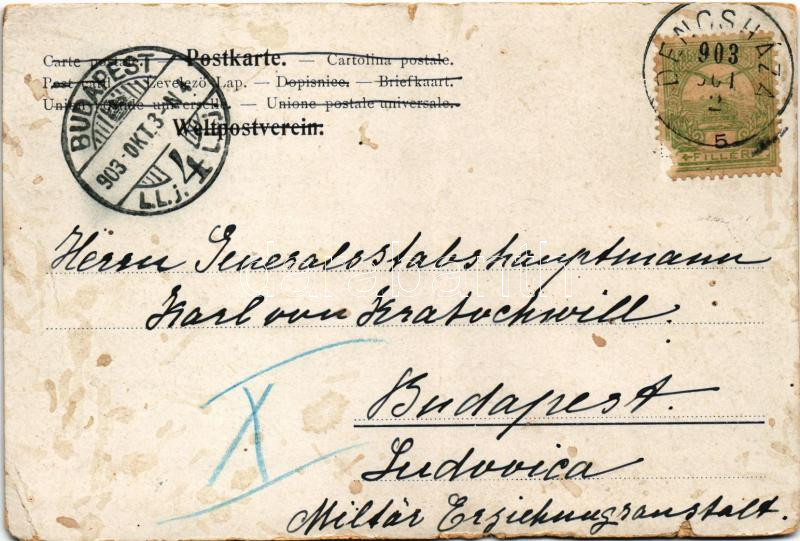 Carte postale. — Postkarte. — Cartolina postale.
Post card. — Levelező Lap. — Dopisnice. — Briefkaart.
Union postale universelle. — Unione postale universale.
Weltpostverein.
BUDAPEST
903 OKT. 3
4
I.I.j.
903
5
FILLÉR
Herrn Generalsstabshauptmann
Karl von Kratochwill.
Budapest.
Ludovica
Militär Erziehungsanstalt.
X